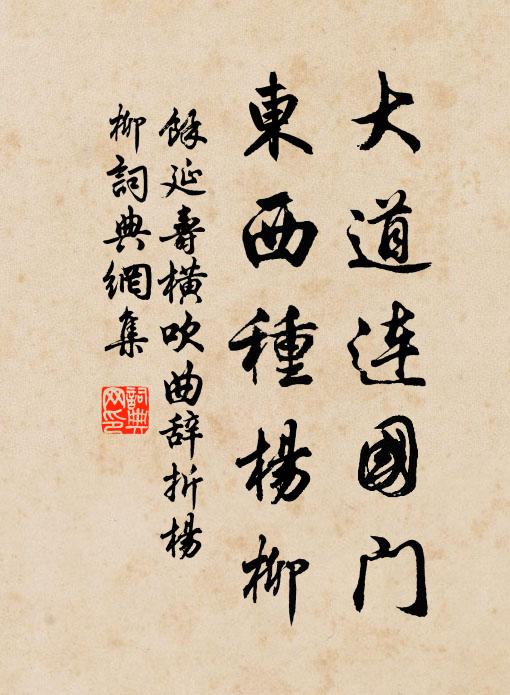 大道连國门
東西種楊柳
餘延壽横吹曲辞折楊
柳詞典網集
詞典
网印